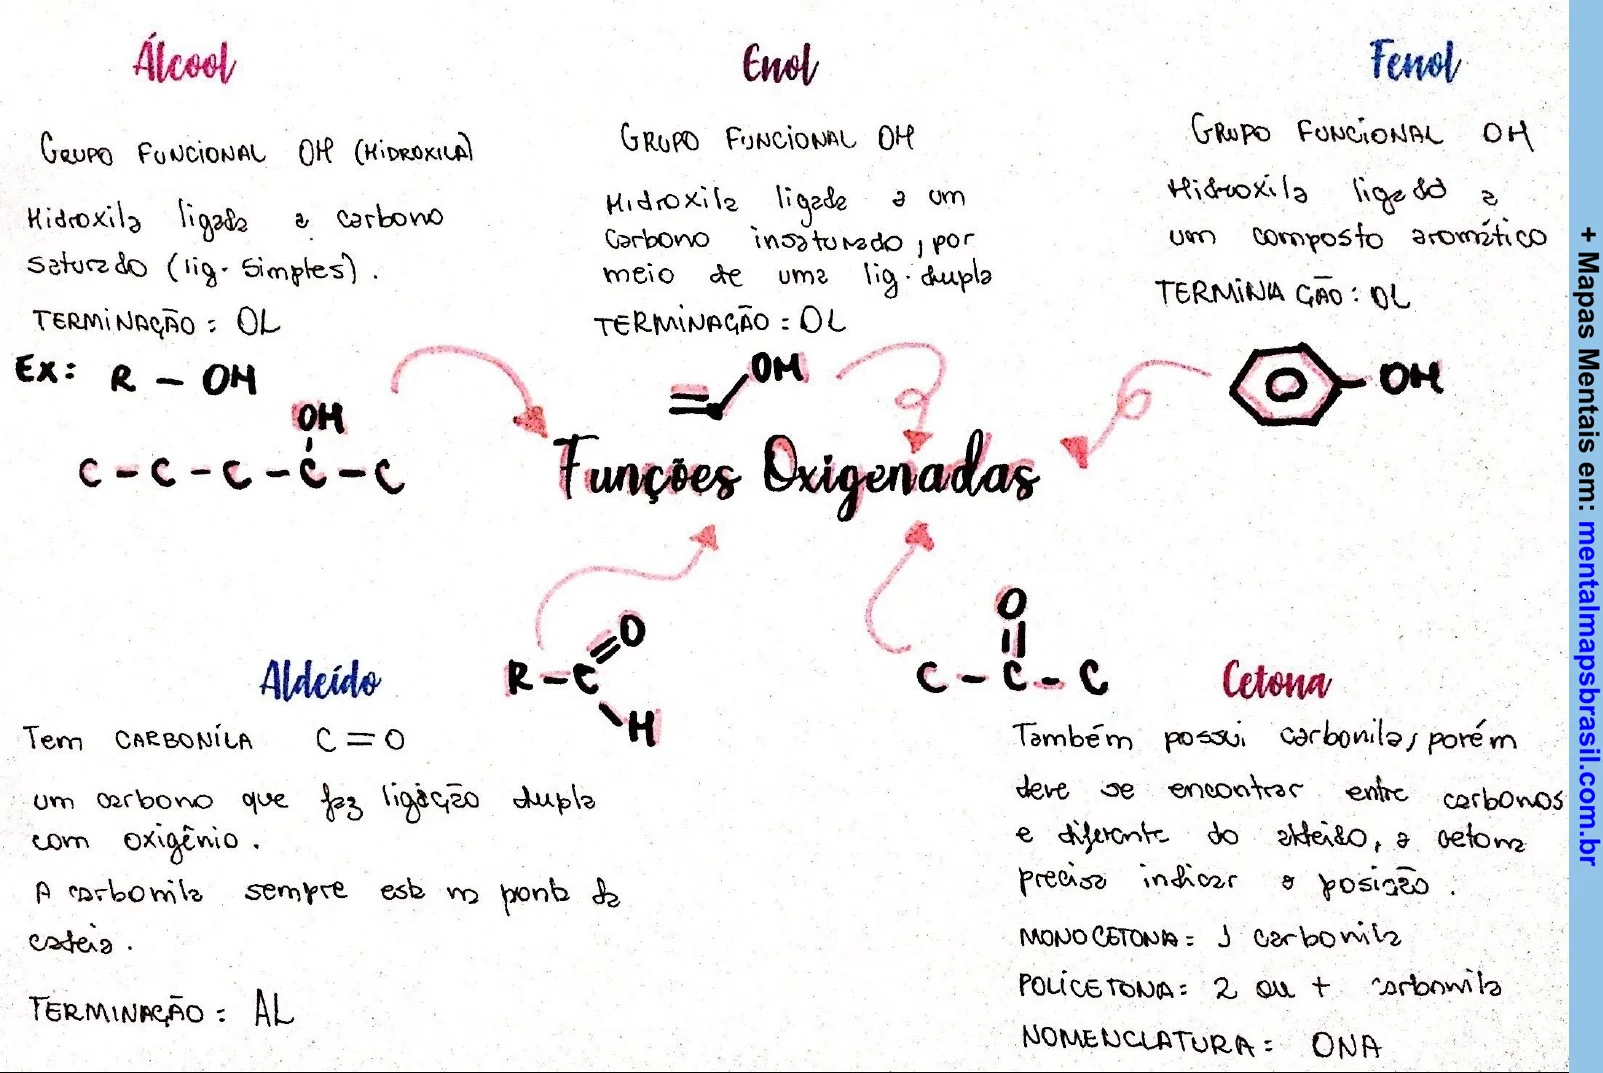 Álcool
GRUPO FUNCIONAL OH (HIDROXILA)
Hidroxila ligada a carbono
saturado (lig. simples).
TERMINAÇÃO: OL
Ex: R - OH
OH
C - C - C - C - C
Enol
GRUPO FUNCIONAL OH
Hidroxila ligada a um
carbono insaturado, por
meio de uma lig. dupla
TERMINAÇÃO: OL
OH
Fenol
GRUPO FUNCIONAL OH
Hidroxila ligado a
um composto aromático
TERMINA ÇÃO: OL
OH
Funções Oxigenadas
Aldeído
Tem CARBONILA C=O
um carbono que faz ligação dupla
com oxigênio.
A carbonila sempre está na ponta da
cadeia.
TERMINAÇÃO: AL
O
R - C
H
O
C - C - C
Cetona
Também possui carbonila, porém
deve se encontrar entre carbonos
e diferente do aldeído, a cetona
precisa indicar a posição.
MONOCETONA: 1 carbonila
POLICETONA: 2 ou + carbonila
NOMENCLATURA: ONA
+ Mapas Mentais em: mentalmapsbrasil.com.br